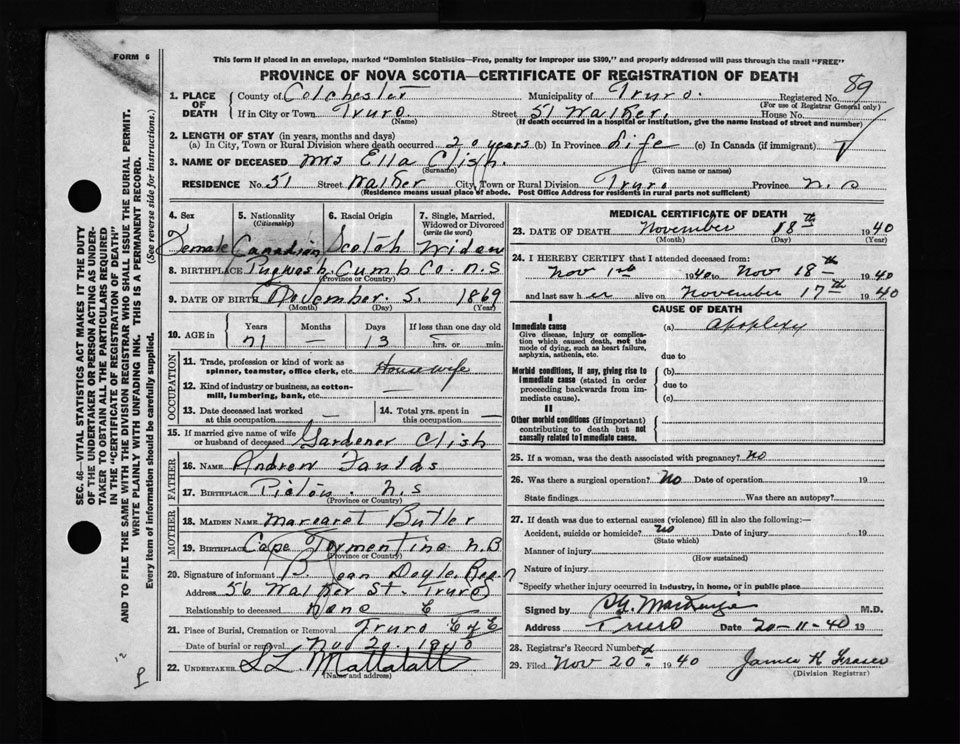 FORM 6
This form if placed in an envelope, marked "Dominion Statistics—Free, penalty for improper use $300," and properly addressed will pass through the mail "FREE"
PROVINCE OF NOVA SCOTIA—CERTIFICATE OF REGISTRATION OF DEATH
1. PLACE OF DEATH County of Colchester Municipality of Truro. Registered No. 89
(For use of Registrar General only)
If in City or Town Truro. Street 51 Walker. House No.
(Name) (If death occurred in a hospital or institution, give the name instead of street and number)
2. LENGTH OF STAY (in years, months and days)
(a) In City, Town or Rural Division where death occurred 20 years (b) In Province Life (c) In Canada (if immigrant)
3. NAME OF DECEASED Mrs Ella Clish.
(Surname) (Given name or names)
RESIDENCE No. 51 Street Walker City, Town or Rural Division Truro Province N.S
(Residence means usual place of abode. Post Office Address for residents in rural parts not sufficient)
4. Sex 5. Nationality (Citizenship) 6. Racial Origin 7. Single, Married, Widowed or Divorced (write the word)
Female Canadian Scotch Widow
8. BIRTHPLACE Pugwash, Cumb Co. N.S
(Province or Country)
9. DATE OF BIRTH November. 5. 1869
(Month) (Day) (Year)
10. AGE in Years Months Days If less than one day old
71 — 13 hrs. or min.
OCCUPATION
11. Trade, profession or kind of work as spinner, teamster, office clerk, etc. House wife
12. Kind of industry or business, as cotton-mill, lumbering, bank, etc. —
13. Date deceased last worked at this occupation — 14. Total yrs. spent in this occupation —
15. If married give name of wife or husband of deceased Gardener Clish
FATHER
16. NAME Andrew Faulds
17. BIRTHPLACE Pictou. N.S
(Province or Country)
MOTHER
18. MAIDEN NAME Margaret Butler
19. BIRTHPLACE Cape Tormentine N.B
(Province or Country)
20. Signature of informant B. Jean Doyle, Reg. N
Address 56 Walker St. Truro
Relationship to deceased None
21. Place of Burial, Cremation or Removal Truro
Date of burial or removal Nov 20. 1940
22. UNDERTAKER
(Name and address)
MEDICAL CERTIFICATE OF DEATH
23. DATE OF DEATH November 18th 1940
(Month) (Day) (Year)
24. I HEREBY CERTIFY that I attended deceased from:
Nov 1940 to Nov 18th 1940
and last saw her alive on November 17th 1940
CAUSE OF DEATH
I
Immediate cause
Give disease, injury or complication which caused death, not the mode of dying, such as heart failure, asphyxia, asthenia, etc.
(a) apoplexy
due to
Morbid conditions, if any, giving rise to immediate cause (stated in order proceeding backwards from immediate cause).
(b)
due to
(c)
II
Other morbid conditions (if important) contributing to death but not causally related to immediate cause.
25. If a woman, was the death associated with pregnancy? No
26. Was there a surgical operation? No Date of operation 19
State findings Was there an autopsy?
27. If death was due to external causes (violence) fill in also the following:—
Accident, suicide or homicide? no Date of injury 19
(State which)
Manner of injury
(How sustained)
Nature of injury
Specify whether injury occurred in industry, in home, or in public place
Signed by M.D.
Address Truro Date 20-11-40 19
28. Registrar's Record Number
29. Filed Nov 20. 1940 James K Fraser
(Division Registrar)
SEC. 46—VITAL STATISTICS ACT MAKES IT THE DUTY OF THE UNDERTAKER OR PERSON ACTING AS UNDERTAKER TO OBTAIN ALL THE PARTICULARS REQUIRED IN THE "CERTIFICATE OF REGISTRATION OF DEATH" AND TO FILE THE SAME WITH THE DIVISION REGISTRAR WHO SHALL ISSUE THE BURIAL PERMIT.
WRITE PLAINLY WITH UNFADING INK. THIS IS A PERMANENT RECORD.
Every item of information should be carefully supplied. (See reverse side for instructions.)